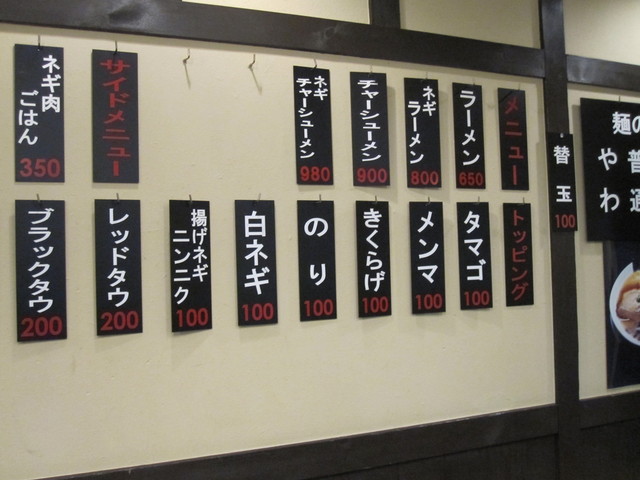 メニュー
ラーメン
650
ネギ
ラーメン
800
チャーシューメン
900
ネギ
チャーシューメン
980
サイドメニュー
ネギ肉
ごはん
350
トッピング
タマゴ
100
メンマ
100
きくらげ
100
のり
100
白ネギ
100
揚げネギ
ニンニク
100
レッドタウ
200
ブラックタウ
200
替玉
100
麺の
普通
やわ